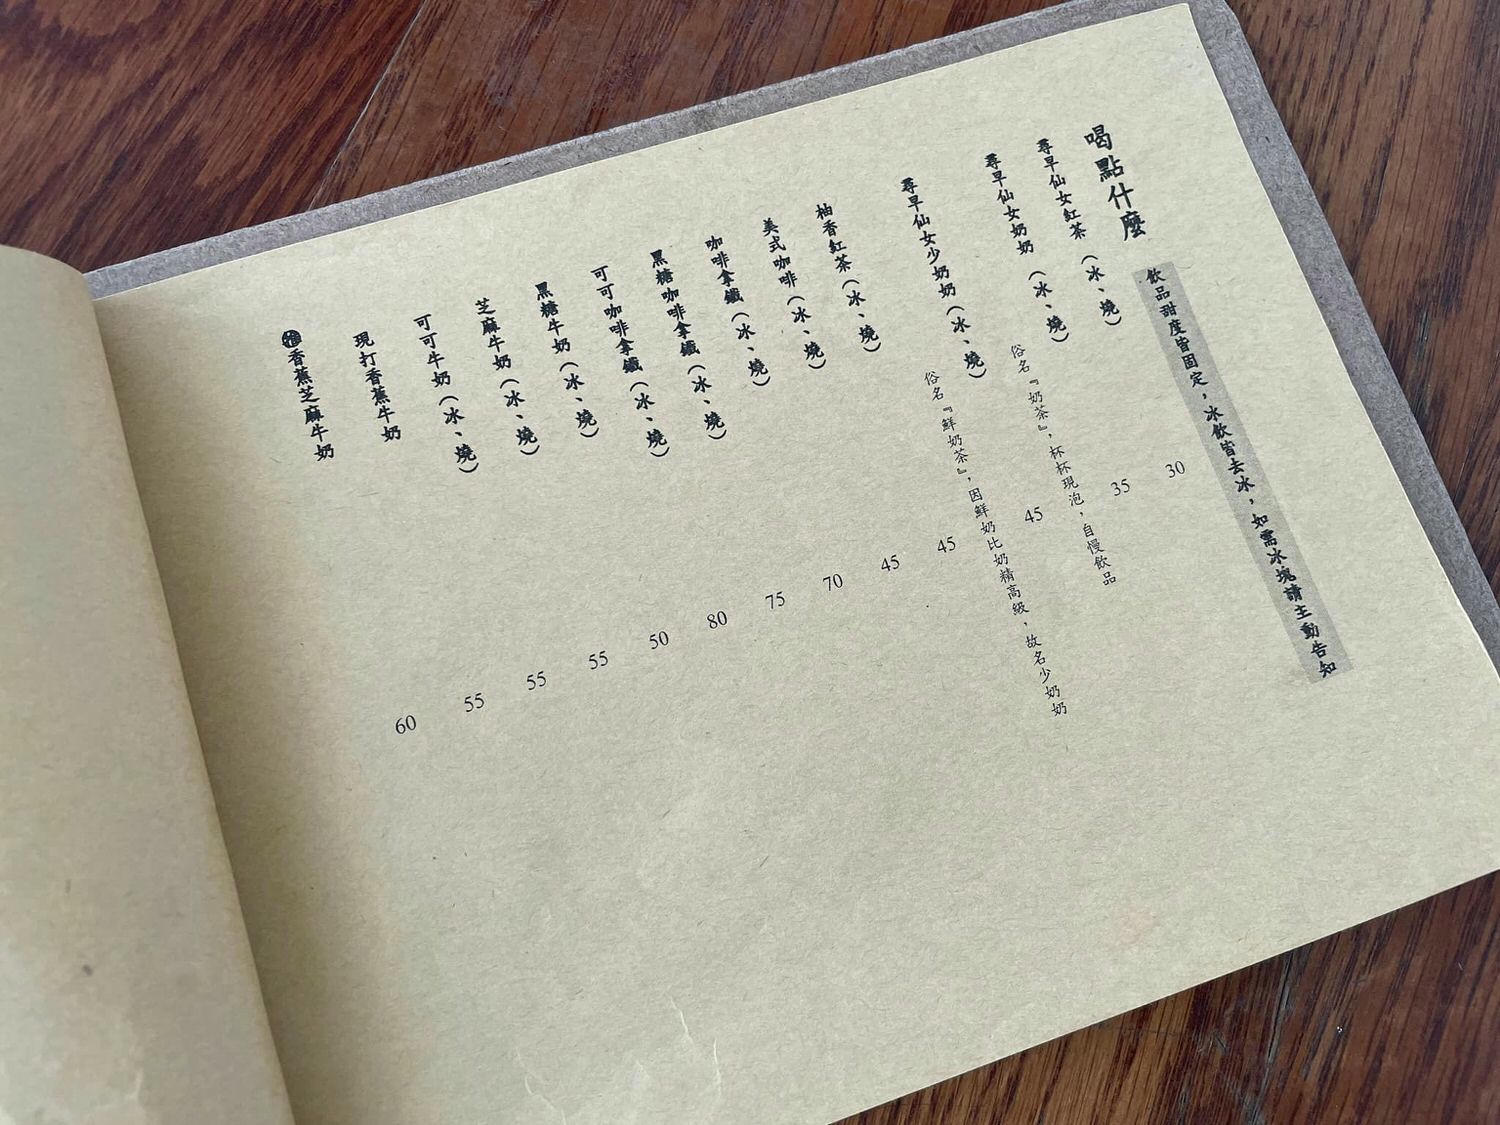 喝點什麼
飲品甜度皆固定，冰飲皆去冰，如需冰塊請主動告知
尋早仙女紅茶（冰、燒） 30
尋早仙女奶奶（冰、燒） 35
俗名『奶茶』，杯杯現泡，自慢飲品
尋早仙女少奶奶（冰、燒） 45
俗名『鮮奶茶』，因鮮奶比奶精高級，故名少奶奶
柚香紅茶（冰、燒） 45
美式咖啡（冰、燒） 45
咖啡拿鐵（冰、燒） 70
黑糖咖啡拿鐵（冰、燒） 75
可可咖啡拿鐵（冰、燒） 80
黑糖牛奶（冰、燒） 50
芝麻牛奶（冰、燒） 55
可可牛奶（冰、燒） 55
現打香蕉牛奶 55
香蕉芝麻牛奶 60